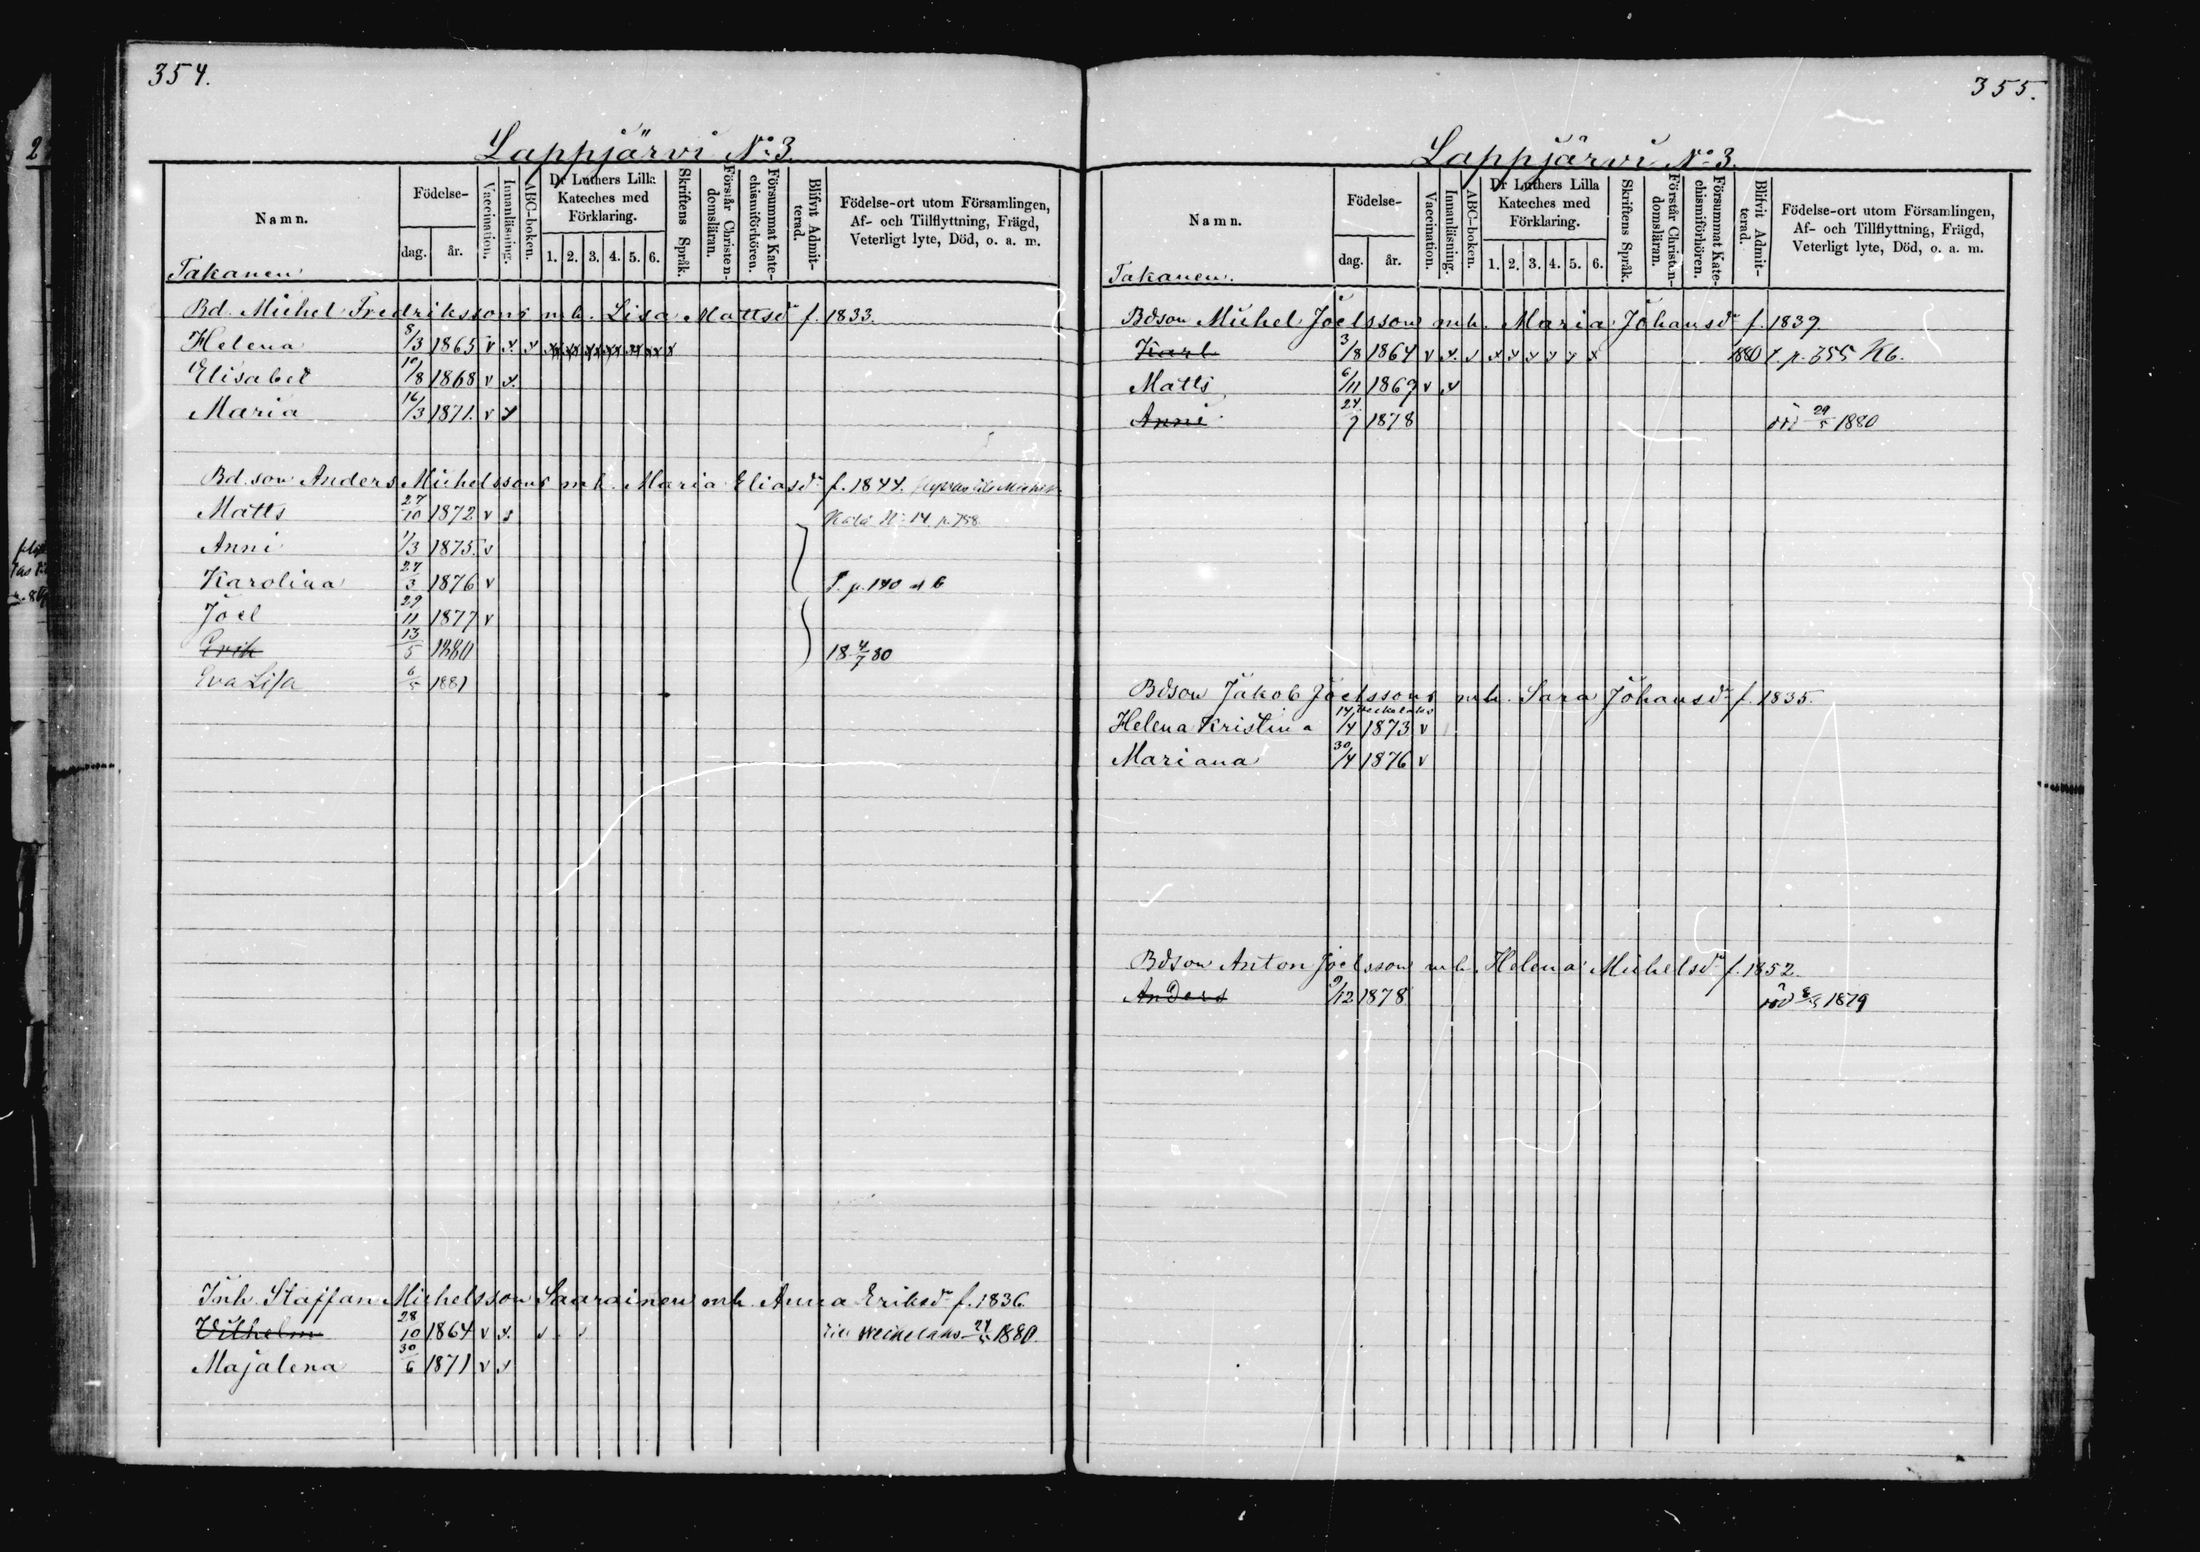 354.
Lappjärvi No 3.
Namn.
Födelse-
dag.
år.
Vaccination.
Innanläsning.
ABC-boken.
Dr Luthers Lilla
Kateches med
Förklaring.
1. 2. 3. 4. 5. 6.
Skriftens Språk.
Förstår Christen-
domsläran.
Försummat Kate-
chismiförhören.
Blifvit Admit-
terad.
Födelse-ort utom Församlingen,
Af- och Tillflyttning, Frägd,
Veterligt lyte, Död, o. a. m.
Takanen
Bd. Michel Fredrikssons m h. Lisa Mattsdr f. 1833.
Helena 8/3 1865 v x x
Elisabet 10/8 1868 v x
Maria 16/3 1871. v x
Bd. son Anders Michelssons m h. Maria Eliasdr f. 1844.
Matts 27/10 1872 v s No 14 p. 758.
Anni 1/3 1875. s
Karolina 27/3 1876 v p. 140
Joel 29/11 1877 v
Erik 13/5 1880 18 4/7 80
Eva Lisa 6/5 1881
Inh. Staffan Michelsson Saarainen m h. Anna Eriksdr f. 1836.
Vilhelm 28/10 1864 v x. till 24/5 1880.
Majalena 30/6 1871 v x
2
355.
Lappjärvi No 3.
Namn.
Födelse-
dag.
år.
Vaccination.
Innanläsning.
ABC-boken.
Dr Luthers Lilla
Kateches med
Förklaring.
1. 2. 3. 4. 5. 6.
Skriftens Språk.
Förstår Christen-
domsläran.
Försummat Kate-
chismiförhören.
Blifvit Admit-
terad.
Födelse-ort utom Församlingen,
Af- och Tillflyttning, Frägd,
Veterligt lyte, Död, o. a. m.
Takanen.
Bdson Michel Joelsson m h. Maria Johansdr f. 1839.
Karl 3/8 1864 v x x x x x x x x 1880 p. 355 Kb.
Matts 6/11 1869 v x
Anni 24/7 1878 död 29/5 1880
Bdson Jakob Joelssons m h. Sara Johansdr f. 1835.
Helena Kristina 14/4 1873 v
Mariana 30/4 1876 v
Bdson Anton Joelsson m h. Helena Michelsdr f. 1852.
Anders 9/12 1878 död 1879